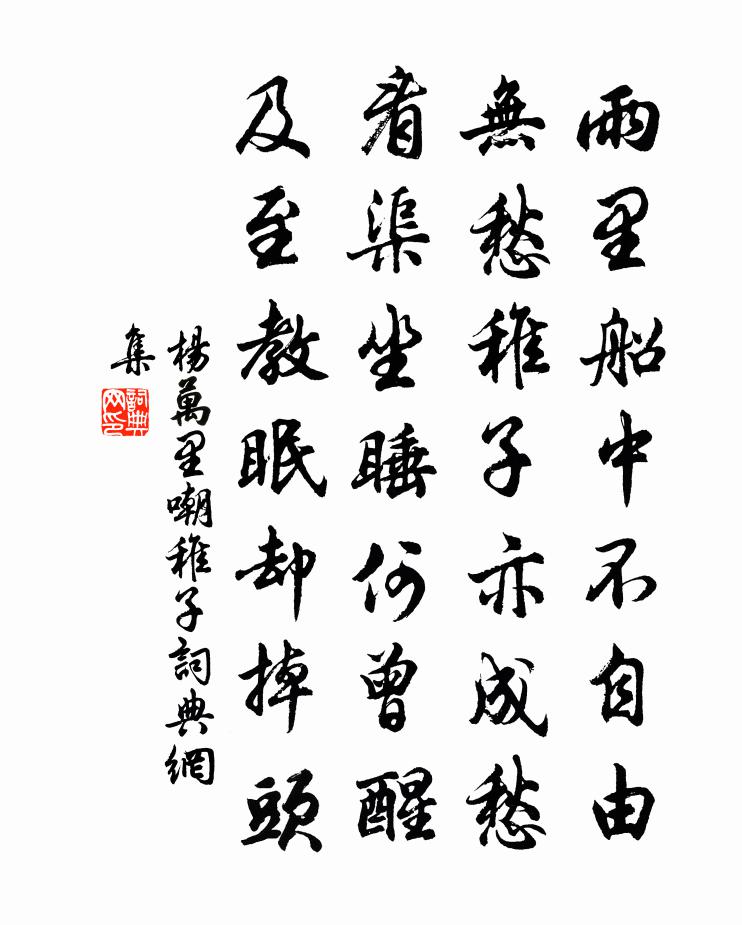 雨里船中不自由
無愁稚子亦成愁
看渠坐睡何曾醒
及至教眠却掉頭
楊萬里嘲稚子詞典網
集
詞典
网印